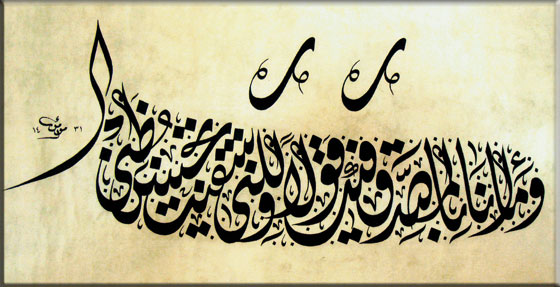 وما أنا بالمصدق فيك قولا ولكني شقيت بحسن ظني
١٤٣١